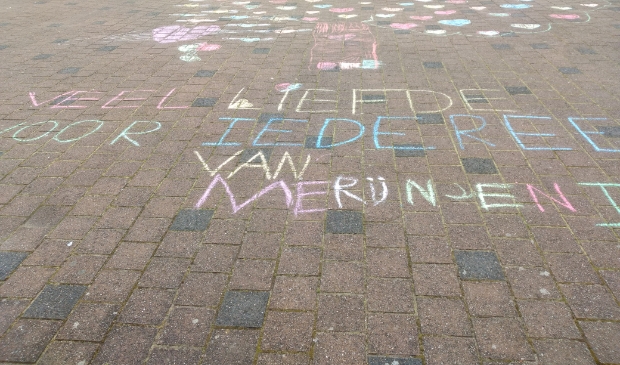 VEEL LIEFDE
VOOR IEDEREE
VAN
MERIJN EN